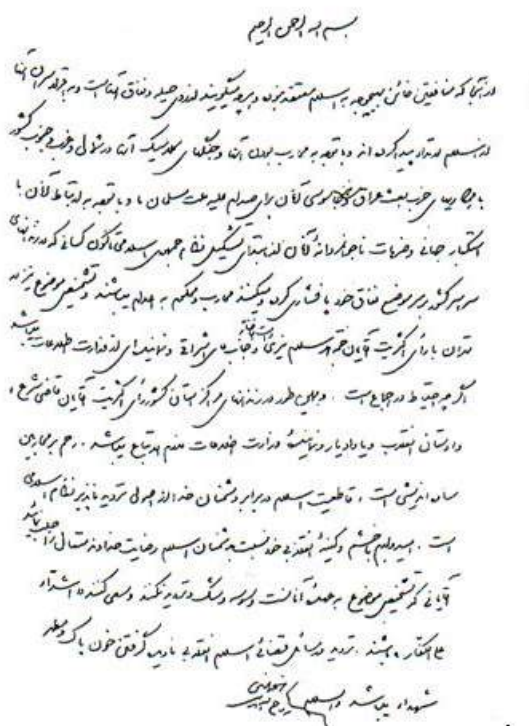 بسم الله الرحمن الرحیم
از آنجا که منافقین خائن به هیچ وجه به اسلام معتقد نبوده و هر چه میگویند از روی حیله و نفاق آنهاست و به اقرار سران آنها
از اسلام ارتداد پیدا کرده اند و با توجه به محارب بودن آنها و جنگهای کلاسیک آنها در شمال و غرب و جنوب کشور
با همکاریهای حزب بعث عراق و نیز جاسوسی آنان برای صدام علیه ملت مسلمان ما و با توجه به ارتباط آنان با
استکبار جهانی و ضربات ناجوانمردانه آنان از ابتدای تشکیل نظام جمهوری اسلامی تا کنون کسانی که در زندانهای
سراسر کشور بر سر موضع نفاق خود پافشاری کرده و میکنند محارب و محکوم به اعدام میباشند و تشخیص موضوع نیز در
تهران با رای اکثریت آقایان حجةالاسلام نیری دامت افاضاته و جناب آقای اشراقی و نماینده ای از وزارت اطلاعات میباشد
اگر چه احتیاط در اجماع است . و همین طور در زندانهای مراکز استان کشور رای اکثریت آقایان قاضی شرع ،
دادستان انقلاب و یا دادیار و نماینده وزارت اطلاعات لازم الاتباع میباشد . رحم بر محاربین
ساده اندیشی است ، قاطعیت اسلام در برابر دشمنان خدا از اصول تردید ناپذیر نظام اسلامی
است . امیدوارم با خشم و کینه انقلابی خود نسبت به دشمنان اسلام رضایت خداوند متعال را جلب نمائید
آقایانی که تشخیص موضوع به عهده آنانست وسوسه و شک و تردید نکنند و سعی کنند « اشداء
علی الکفار » باشند . تردید در مسائل قضائی اسلام انقلابی نادیده گرفتن خون پاک و مطهر
شهداء میباشد والسلام روح الله الموسوی الخمینی